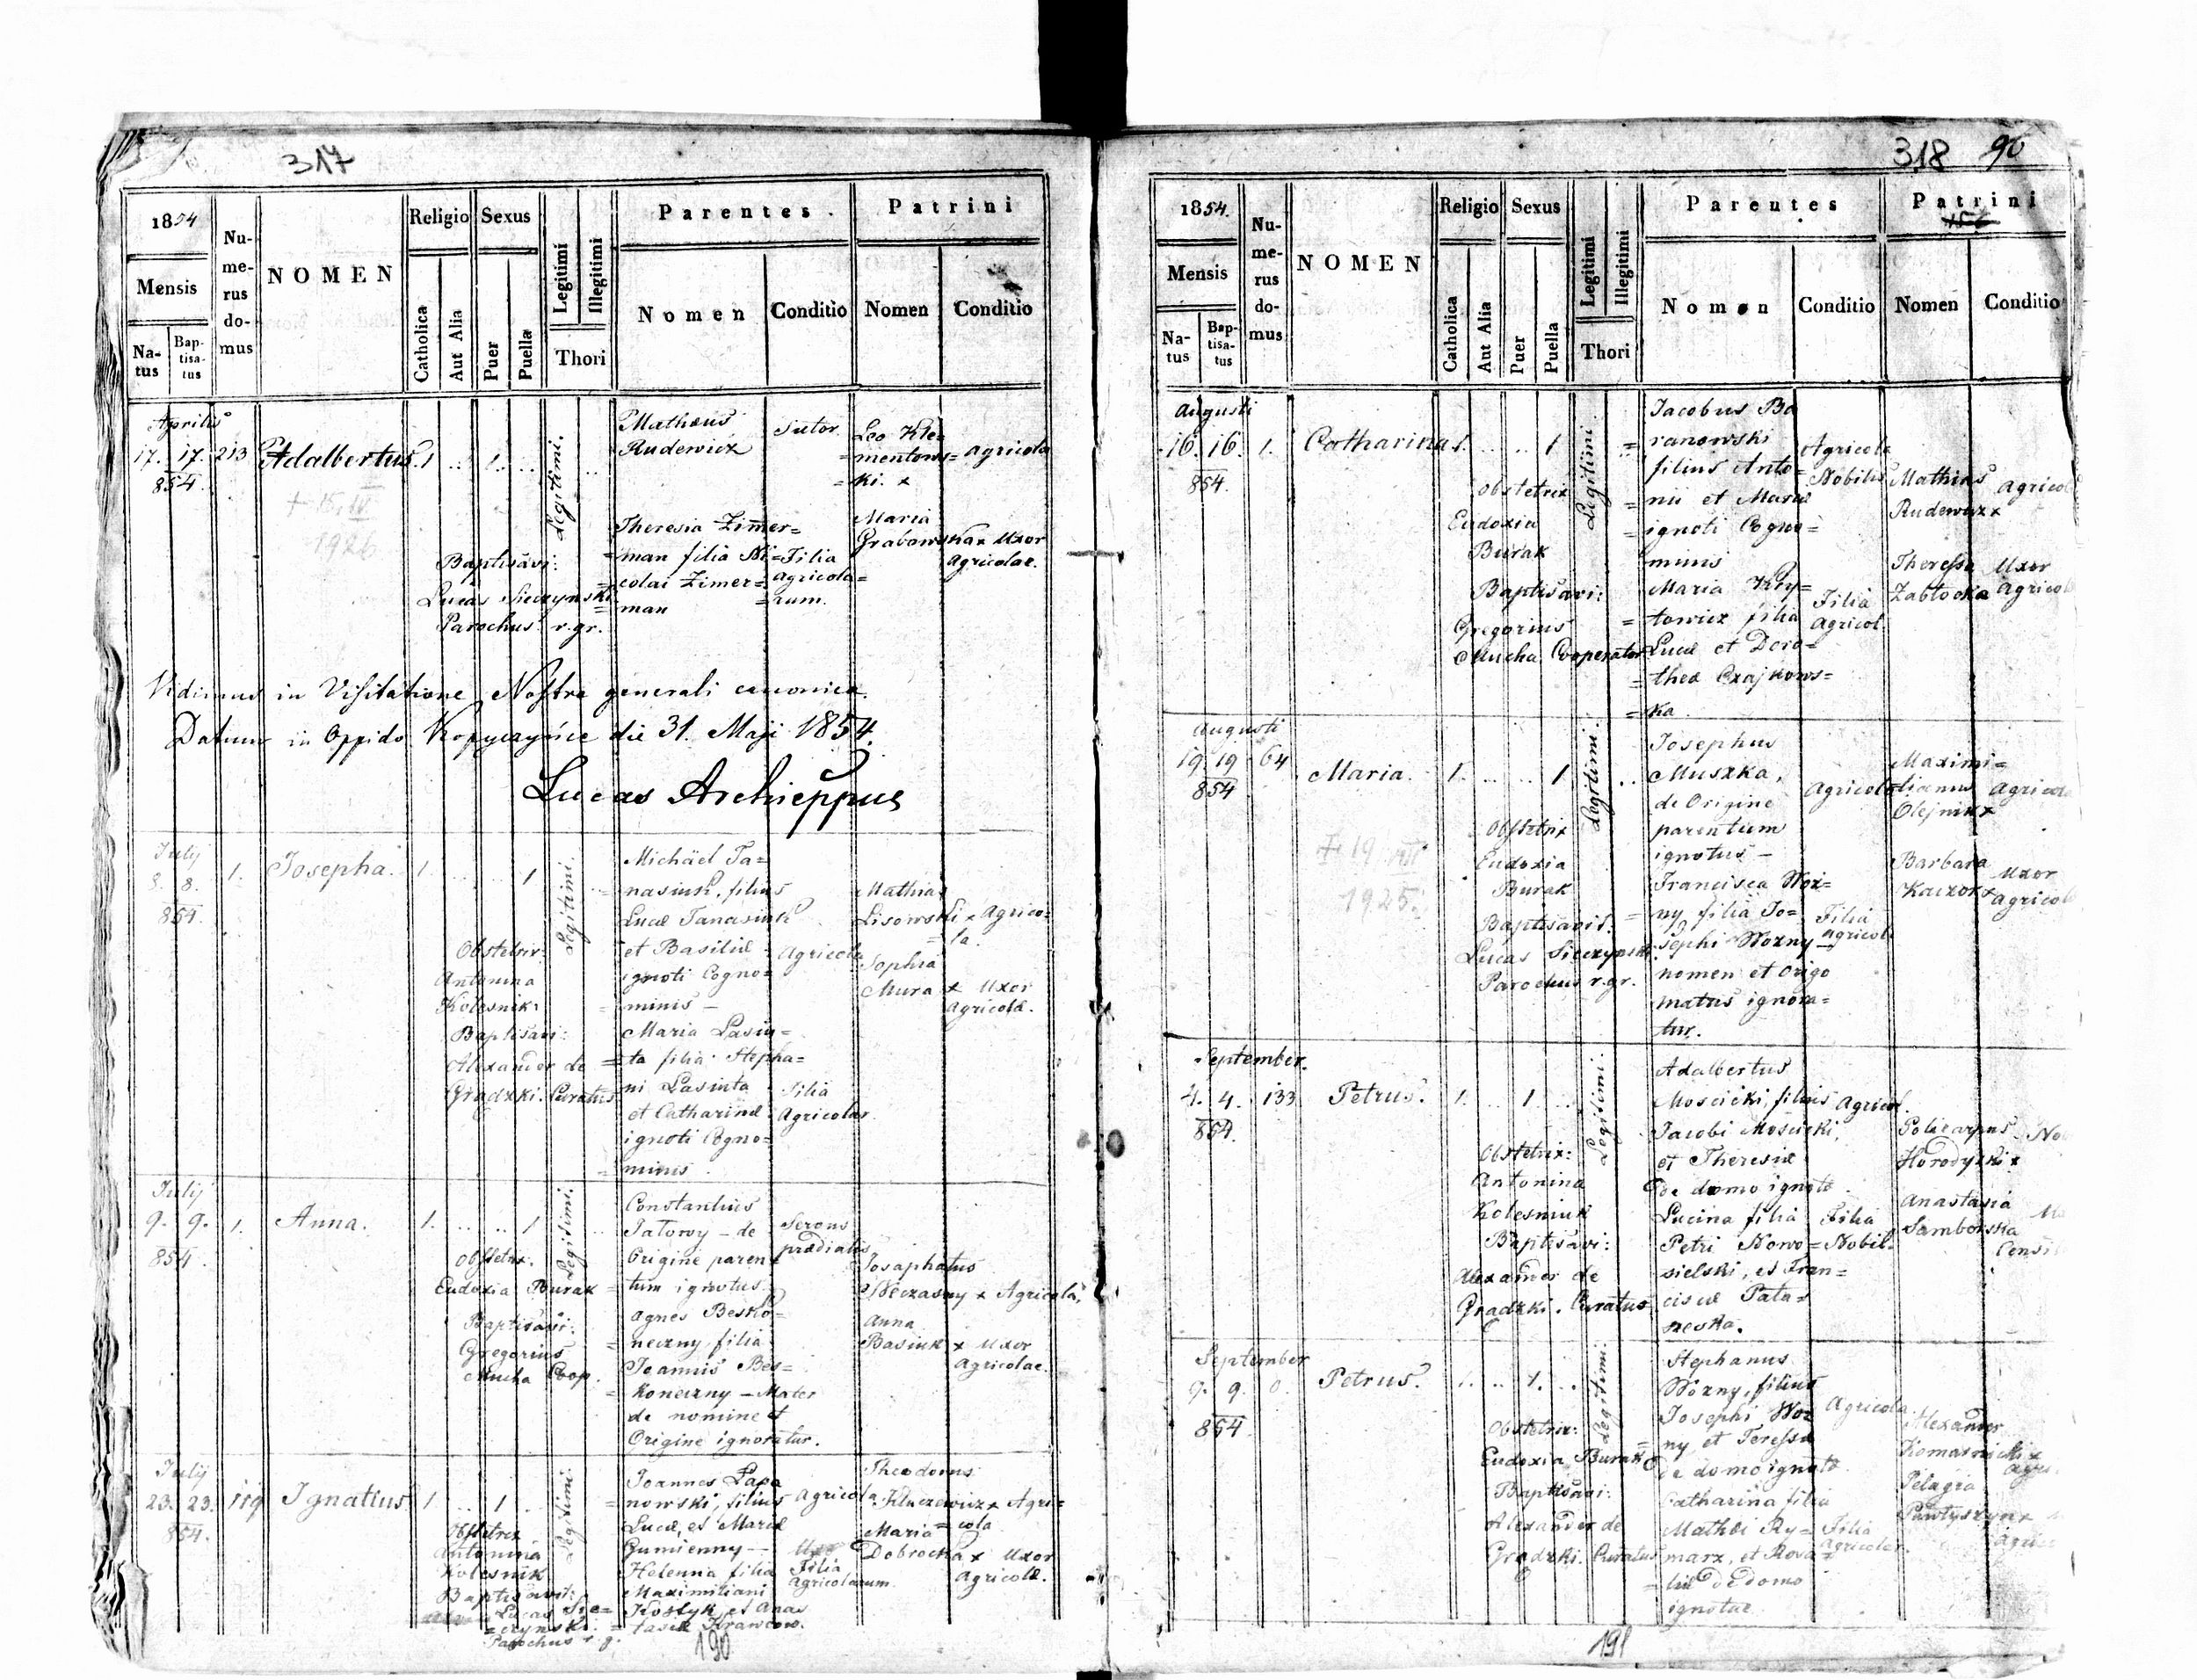 317
1854
Mensis
Na-
tus
Bap-
tisa-
tus
Nu-
me-
rus
do-
mus
NOMEN
Religio
Catholica
Aut Alia
Sexus
Puer
Puella
Legitimi
Illegitimi
Thori
Parentes.
Nomen
Conditio
Patrini
Nomen
Conditio
Aprilis
17. 17. 213
854.
Adalbertus. 1 .. 1. ..
Legitimi.
+ 15. IV
1926
Baptisavi:
Lucas Sieczynski
Parochus r.gr.
Mathæus
Rudewicz
Sutor
Theresia Zimer=
=man filia Ni=
colai Zimer=
=man
Filia
agricola=
=rum.
Leo Kle=
=mentows=
=ki. x
agricola
Maria
Grabowska x Uxor
Agricolae.
Vidimus in Visitatione Nostra generali canonica.
Datum in Oppido Kopyczyńce die 31. Maji 1854.
Lucas Archieppus
July
8. 8. 1.
854.
Josepha. 1. .. .. 1
Legitimi.
Obstetrix:
Antonina
Kolesnik:
Baptisavi:
Alexander de
Gradzki. Curatus
Michäel Ta=
nasiuk, filius
Lucæ Tanasiuk
et Basiliæ
ignoti Cogno=
=minis –
Maria Lasiu=
=ta filia Stepha=
ni Lasiuta
et Catharinæ
ignoti Cogno=
=minis.
Agricola
Filia
Agricolar.
Mathias
Lisowski x Agrico=
=la.
Sophia
Mura x Uxor
Agricolæ.
July
9. 9. 1.
854.
Anna. 1. .. .. 1
Legitimi.
Obstetrix:
Eudoxia Burak
Baptisavi:
Gregorius
Mucha Coop.
Constantius
Jatowy – de
Origine paren=
=tum ignotus.
Agnes Besko=
=neczny, filia
Joannis Bes=
=koneczny – Mater
de nomine et
Origine ignoratur.
prædialis
Josaphatus
Wczasny x Agricola,
Anna
Basiuk x Uxor
Agricolae.
July
23. 23. 119
854.
Ignatius 1 .. 1
Legitimi.
Obstetrix
Antonina
Kolesnik
Baptisavit:
Lucas Sie=
=czynski.
Parochus r. g.
Joannes Lapa
=nowski, filius
Lucæ, et Mariæ
Gumienny –
Helenna filia
Maximiliani
Kostyk et Anas
=tasiæ Krawców.
Agricola
Filia
Agricolarum
Theodorus
Kluczewicz x Agri=
=cola
Maria
Dobrocka x Uxor
Agricolæ.
190
318 90
1854.
Mensis
Na-
tus
Bap-
tisa-
tus
Nu-
me-
rus
do-
mus
NOMEN
Religio
Catholica
Aut Alia
Sexus
Puer
Puella
Legitimi
Illegitimi
Thori
Parentes
Nomen
Conditio
Patrini
Nomen
Conditio
Augusti
16. 16. 1.
854.
Catharina 1. .. .. 1
Legitimi
Obstetrix
Eudoxia
Burak
Baptisavi:
Gregorius
Mucha Cooperator
Jacobus Ba
=ranowski
filius Anto=
=nii et Mariæ
ignoti Cogno=
=minis
Maria Kry=
=towicz filia
Lucæ et Doro=
=theæ Czajkows=
=ka.
Agricola
Nobilis
Filia
Agricol.
Mathias
Rudewicz x
Agricol
Theressa
Zabłocka
Uxor
Agricol
Augusti
19. 19 64
854
Maria. 1. .. .. 1
Legitimi.
+ 19 VII
1925.
Obstetrix
Eudoxia
Burak
Baptisavit:
Lucas Sieczynski
Parochus r.gr.
Josephus
Muszka,
de Origine
parentum
ignotus –
Francisca Woź=
=ny, filia Jo=
sephi Wozny –
nomen et origo
matris ignora=
tur.
Agricola
Filia
Agricol
Maximi=
lianus
Olejnik x
Agricola
Barbara
Kaczor x
Uxor
Agricol
September.
4. 4. 133
854.
Petrus. 1. .. 1 ..
Legitimi:
Obstetrix:
Antonina
Kolesniuk
Baptisavi:
Alexander de
Gradzki. Curatus
Adalbertus
Moscicki, filius
Jacobi Moscicki,
et Theresiæ
de domo ignotæ.
Lucina filia
Petri Nowo=
sielski, et Fran=
ciscæ Pata=
neska.
Agricol.
Filia
Nobil.
Policarpus
Horodyski x
No
Anastasia
Samborska
September
9. 9. 0.
854.
Petrus. 1. .. 1. ..
Legitimi:
Obstetrix:
Eudoxia Burak
Baptisavi:
Alexander de
Gradzki. Curatus
Stephanus
Wozny, filius
Josephi Woz
=ny et Teressæ
de domo ignotæ.
Catharina filia
Mathæi Ry=
marz, et Rosa=
=liæ de domo
ignotae
Agricola
Filia
Agricolar.
Alexander
Komarnicki x
Pelagia
Pawłyszyn x
191